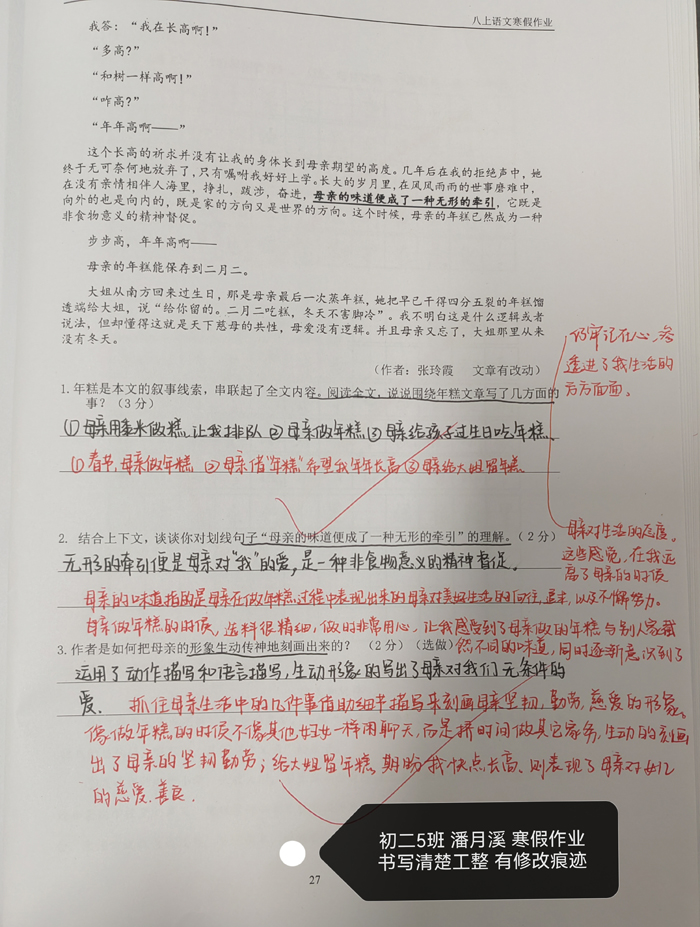 八上语文寒假作业
我答：“我在长高啊！”
“多高？”
“和树一样高啊！”
“咋高？”
“年年高啊——”
这个长高的祈求并没有让我的身体长到母亲期望的高度。几年后在我的拒绝声中，她
终于无可奈何地放弃了，只有嘱咐我好好上学。长大的岁月里，在风风雨雨的世事磨难中，
在没有亲情相伴人海里，挣扎，跋涉，奋进，母亲的味道便成了一种无形的牵引，它既是
向外的也是向内的，既是家的方向又是世界的方向。这个时候，母亲的年糕已然成为一种
非食物意义的精神督促。
步步高，年年高啊——
母亲的年糕能保存到二月二。
大姐从南方回来过生日，那是母亲最后一次蒸年糕，她把早已干得四分五裂的年糕馏
透端给大姐，说“给你留的。二月二吃糕，冬天不害脚冷”。我不明白这是什么逻辑或者
说法，但却懂得这就是天下慈母的共性，母爱没有逻辑。并且母亲又忘了，大姐那里从来
没有冬天。
（作者：张玲霞　文章有改动）
仍牢记在心，渗
透进了我生活的
方方面面。
1.年糕是本文的叙事线索，串联起了全文内容。阅读全文，说说围绕年糕文章写了几方面的
事？（3分）
①母亲用黍米做糕，让我排队②母亲做年糕③母亲给孩子过生日吃年糕、
①春节，母亲做年糕 ②母亲借“年糕”希望我年年长高③母亲给大姐留年糕
2. 结合上下文，谈谈你对划线句子“母亲的味道便成了一种无形的牵引”的理解。（2分）
无形的牵引便是母亲对“我”的爱，是一种非食物意义的精神督促。
母亲对生活的态度。
这些感觉，在我远
离了母亲的时候
母亲的味道指的是母亲在做年糕过程中表现出来的母亲对美好生活的向往，追求，以及不懈努力。
母亲做年糕的时候，选料很精细，做时非常用心，让我感受到了母亲做的年糕与别人家截
然不同的味道，同时逐渐意识到了
3.作者是如何把母亲的形象生动传神地刻画出来的？（2分）（选做）
运用了动作描写和语言描写，生动形象的写出了母亲对我们无条件的
爱.
抓住母亲生活中的几件事借助细节描写来刻画母亲坚韧，勤劳，慈爱的形象。
像做年糕的时候不像其他妇女一样闲聊天，而是挤时间做其它家务，生动的刻画
出了母亲的坚韧勤劳；给大姐留年糕，期盼我快点长高，则表现了母亲对女儿
的慈爱.善良.
初二5班 潘月溪 寒假作业
书写清楚工整 有修改痕迹
27